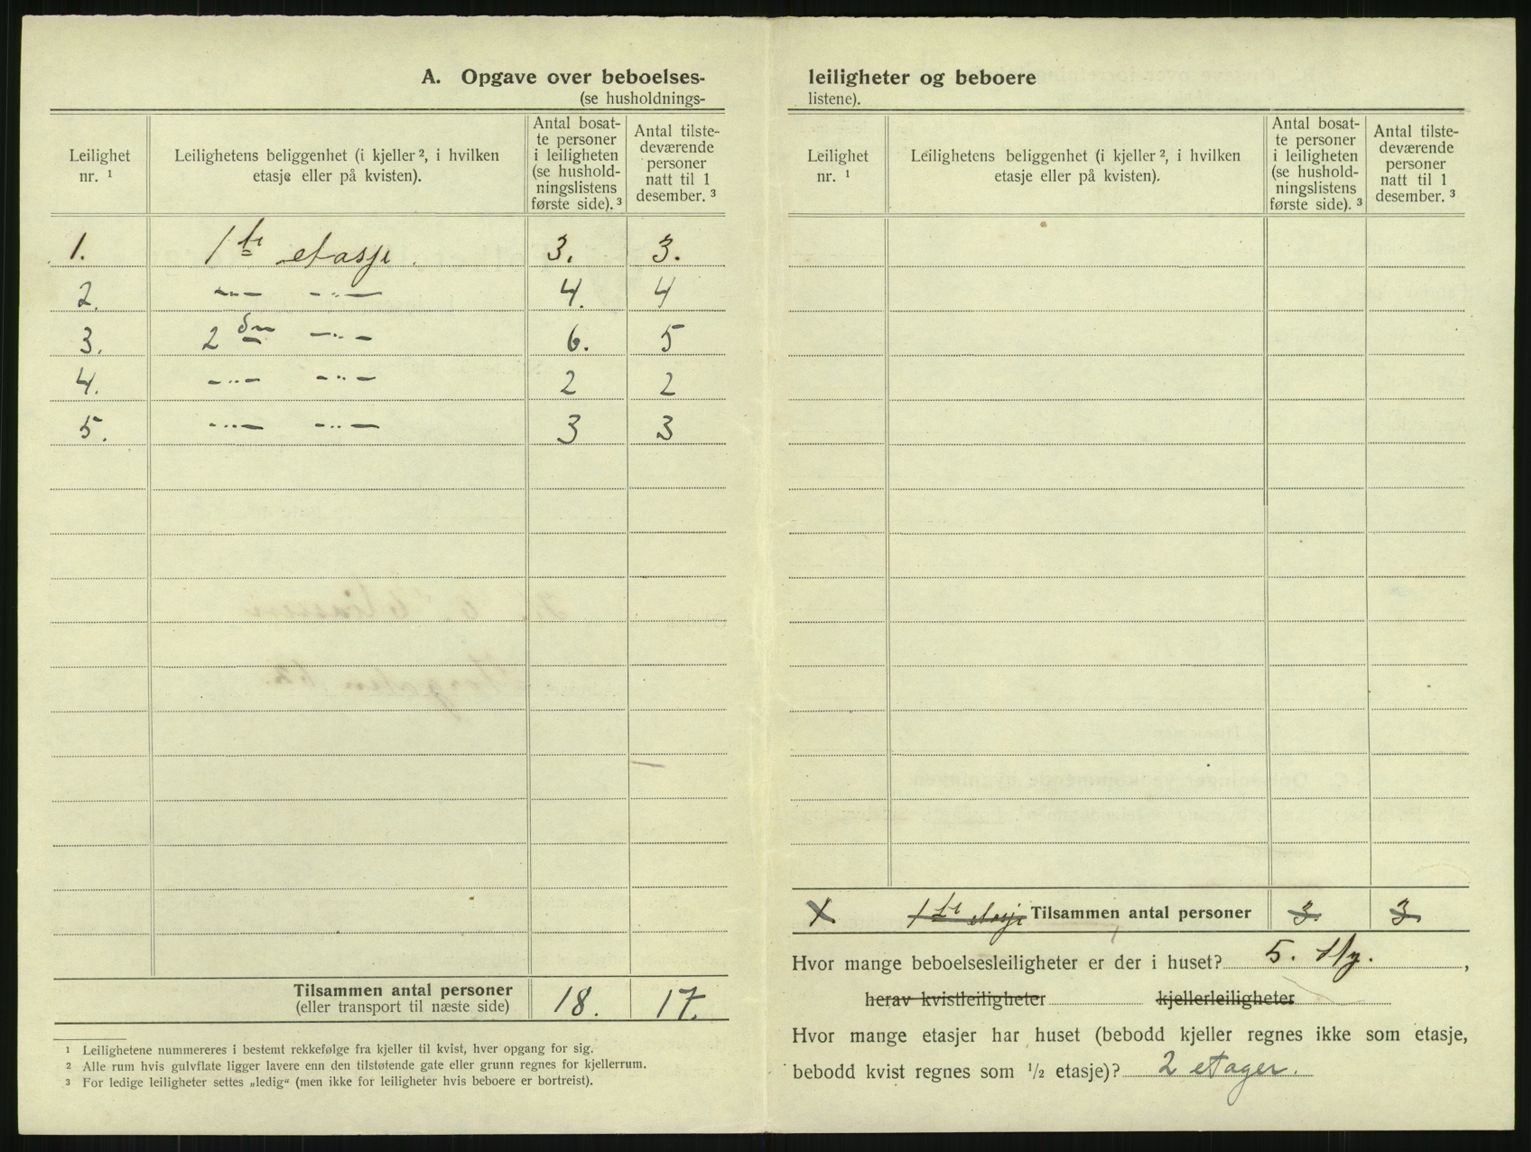 A. Opgave over beboelses-
(se husholdnings-
Leilighet nr. ¹
Leilighetens beliggenhet (i kjeller ², i hvilken etasje eller på kvisten).
Antal bosat-
te personer
i leiligheten
(se hushold-
ningslistens
første side). ³
Antal tilste-
deværende
personer
natt til 1
desember. ³
1. 1ste etasje. 3. 3.
2. —„— —„— 4. 4
3. 2den —„— 6. 5
4. —„— —„— 2 2
5. —„— —„— 3 3
Tilsammen antal personer 18. 17.
(eller transport til næste side)
¹ Leilighetene nummereres i bestemt rekkefølge fra kjeller til kvist, hver opgang for sig.
² Alle rum hvis gulvflate ligger lavere enn den tilstøtende gate eller grunn regnes for kjellerrum.
³ For ledige leiligheter settes „ledig“ (men ikke for leiligheter hvis beboere er bortreist).
leiligheter og beboere
listene).
Leilighet nr. ¹
Leilighetens beliggenhet (i kjeller ², i hvilken etasje eller på kvisten).
Antal bosat-
te personer
i leiligheten
(se hushold-
ningslistens
første side). ³
Antal tilste-
deværende
personer
natt til 1
desember. ³
1 1ste etasje Tilsammen antal personer 3. 3
Hvor mange beboelsesleiligheter er der i huset? 5.
herav kvistleiligheter kjellerleiligheter
Hvor mange etasjer har huset (bebodd kjeller regnes ikke som etasje,
bebodd kvist regnes som ½ etasje)? 2 etager.